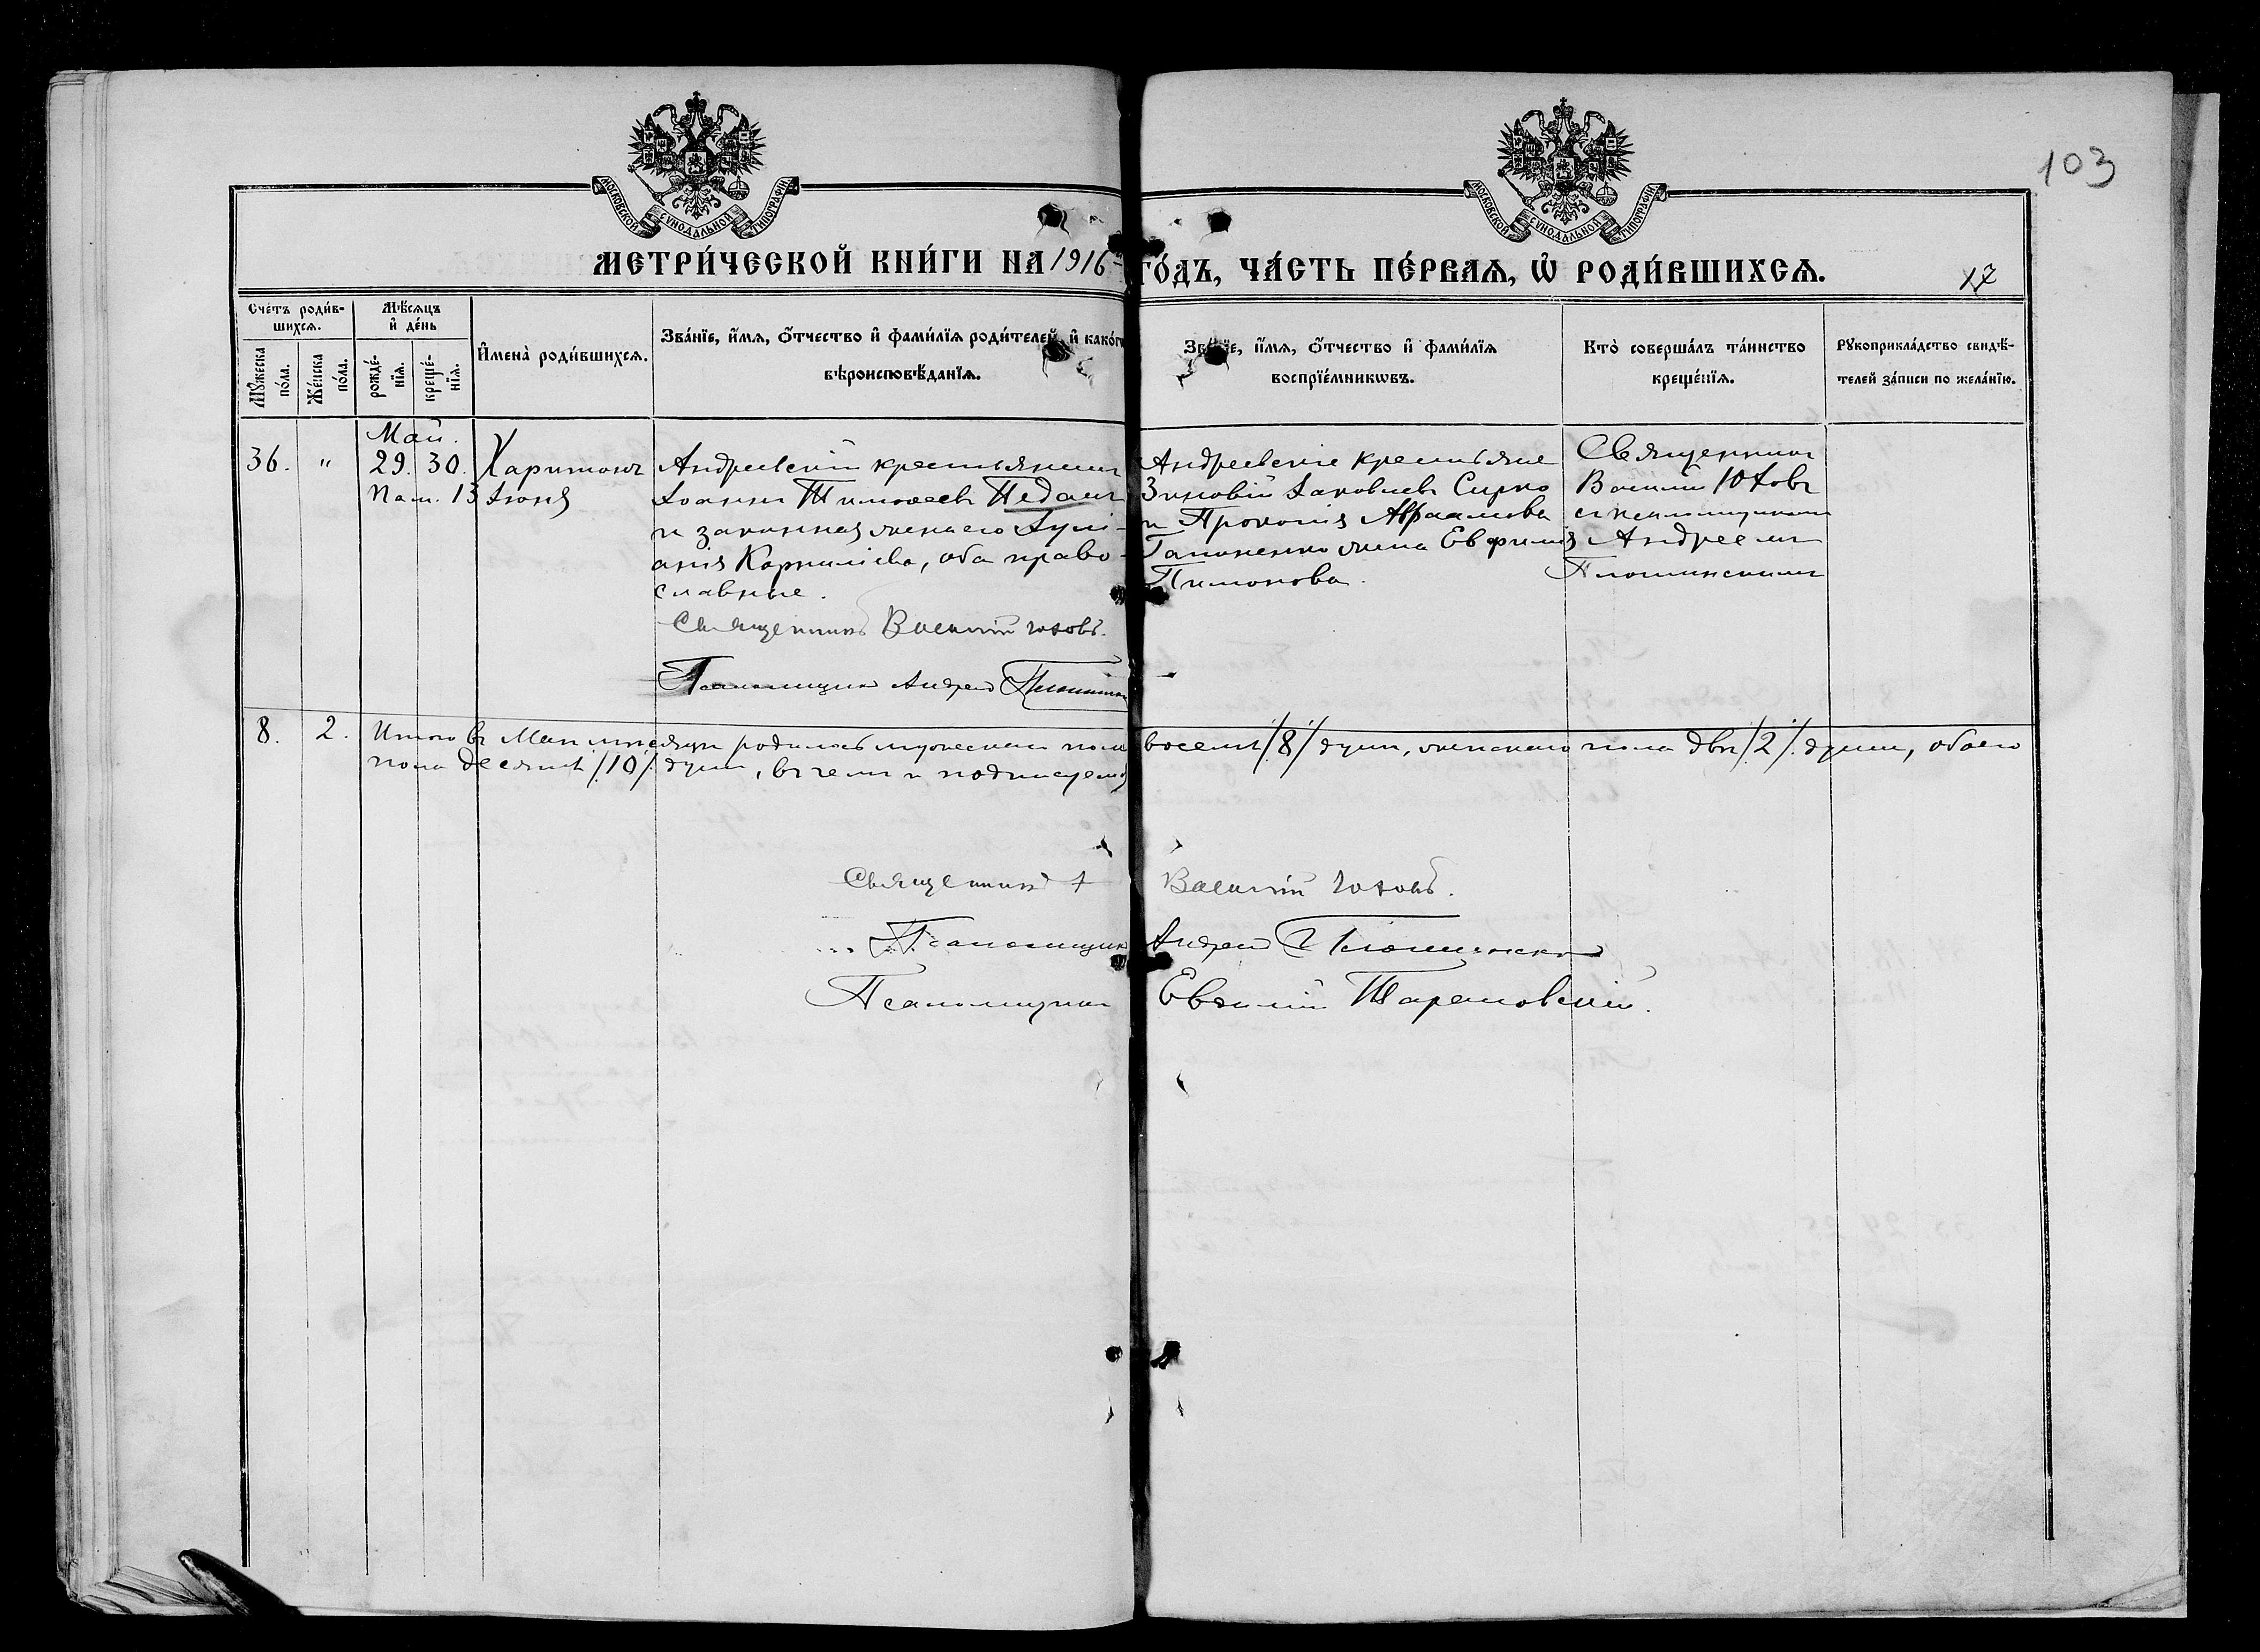 103
МОСКОВСКОЙ СѴНОДАЛЬНОЙ ТИПОГРАФІИ.
МОСКОВСКОЙ СѴНОДАЛЬНОЙ ТИПОГРАФІИ.
МЕТРИ́ЧЕСКОЙ КНИ́ГИ НА 1916 ГО́ДЪ, ЧА́СТЬ ПЕ́РВАѦ, Ѽ РОДИ́ВШИХСѦ.
17
Сче́тъ роди́в-
шихсѧ.
Мꙋ́жеска
по́ла.
Же́нска
по́ла.
Мѣ́сѧцъ
и҆ де́нь
рожде́-
нїѧ.
креще́-
нїѧ.
И҆мена̀ роди́вшихсѧ.
Зва́нїе, и҆́мѧ, ѻ҆́тчество и҆ фами́лїѧ роди́телей, и҆ како́гѡ
вѣроисповѣ́данїѧ.
Зва́нїе, и҆́мѧ, ѻ҆́тчество и҆ фами́лїѧ
воспрїе́мникѡвъ.
Кто̀ соверша́лъ та́инство
креще́нїѧ.
Рꙋкоприкла́дство свидѣ́-
телей за́писи по жела́нїю.
Май.
36. " 29. 30. Харитонъ
Пам. 13 Іюня
Андреевскій крестьянинъ
Іоаннъ Тимоѳеевъ Педанъ
и законная жена его Іулі-
анія Корнилієва, оба право-
славные.
Священникъ Василій Юховъ.
Псаломщикъ Андрей
Андреевскіе крестьяне
Зиновій Іаковлевъ Сирко
и Прокопія Авраамова
Гапоненко жена Евфимія
Тимонова.
Священникъ
Василій Юховъ
съ псаломщикомъ
Андреемъ
8. 2. Итого въ Маѣ мѣсяцѣ родилось мужескаго пола восемь /8/ душъ, женскаго пола двѣ /2/ души, обоего
пола десять /10/ душъ, въ чемъ и подписуемся
Священникъ Василій Юховъ.
Псаломщикъ Андрей
Псаломщикъ Евѳимій Тарановскій.